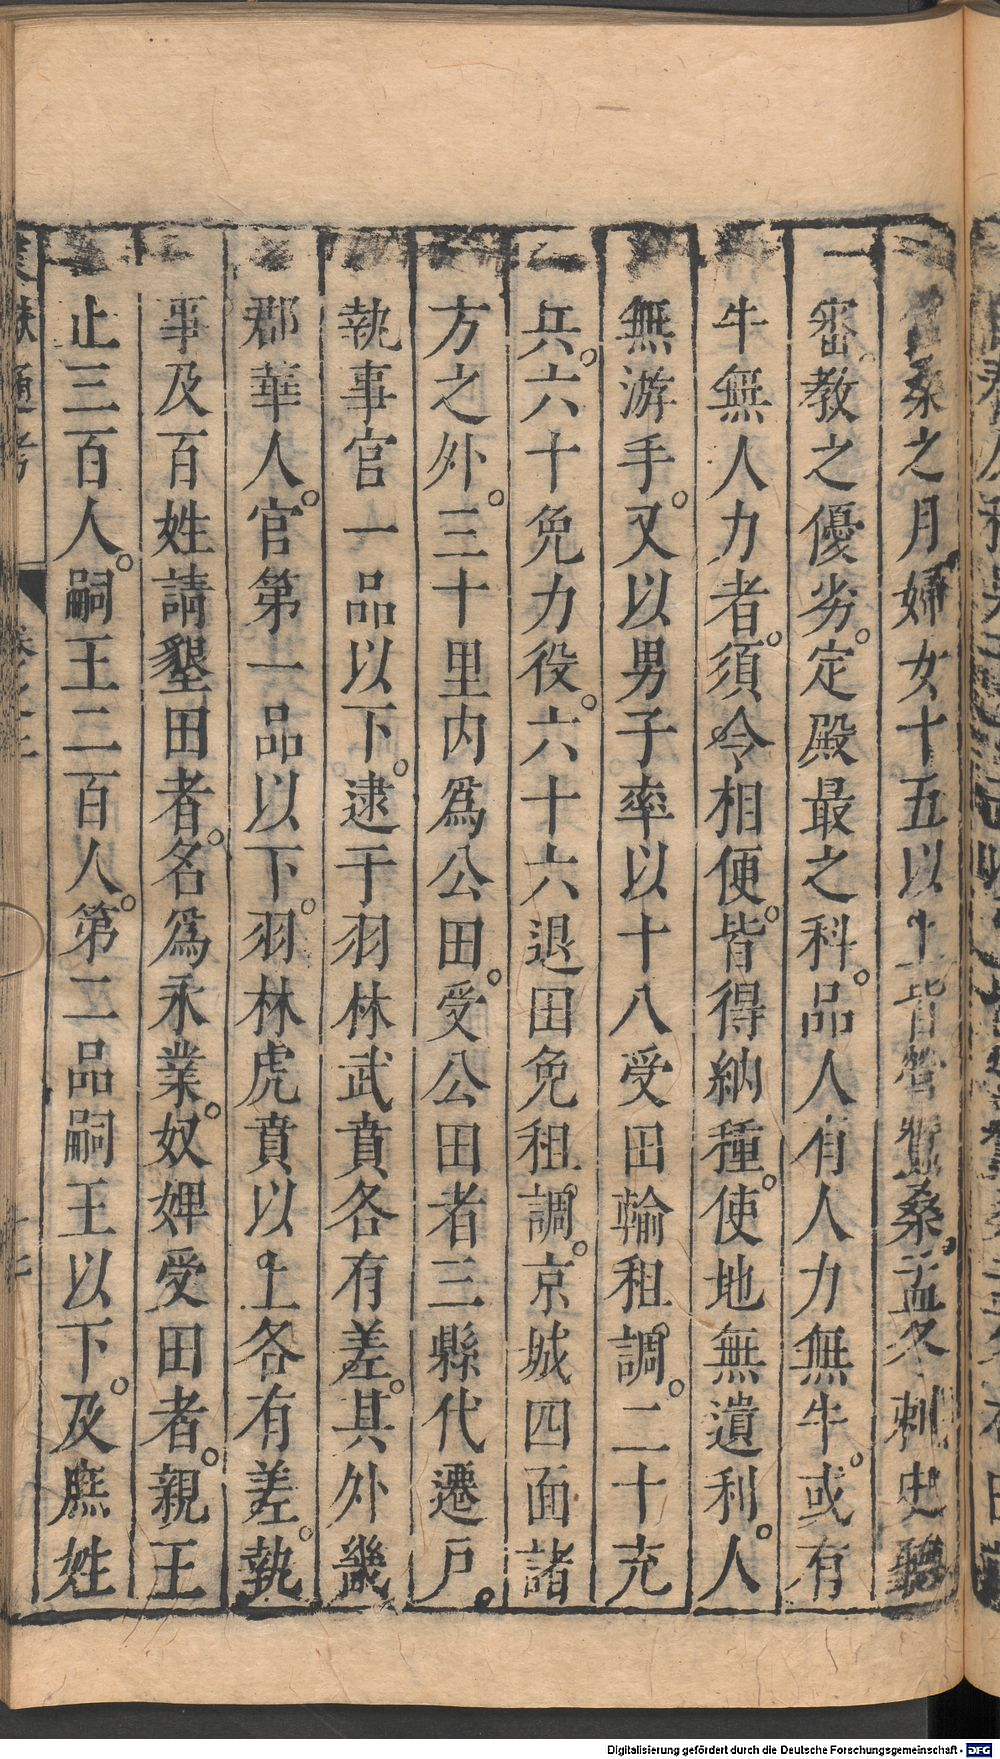 桑之月婦女十五以上皆營蠶桑。孟冬刺史聽
審。教之優劣。定殿最之科。品人有人力無牛。或有
牛無人力者。須令相便。皆得納種。使地無遺利。人
無游手。又以男子率以十八受田輸租調。二十充
兵。六十免力役。六十六退田免租調。京城四面諸
方之外。三十里内爲公田。受公田者三縣代遷戶。
執事官一品以下。逮于羽林武賁各有差。其外畿
郡華人。官第一品以下。羽林虎賁以上各有差。執
事及百姓請墾田者。名爲永業。奴婢受田者。親王
止三百人。嗣王二百人。第二品嗣王以下。及庶姓
獻通考
Digitalisierung gefördert durch die Deutsche Forschungsgemeinschaft - DFG